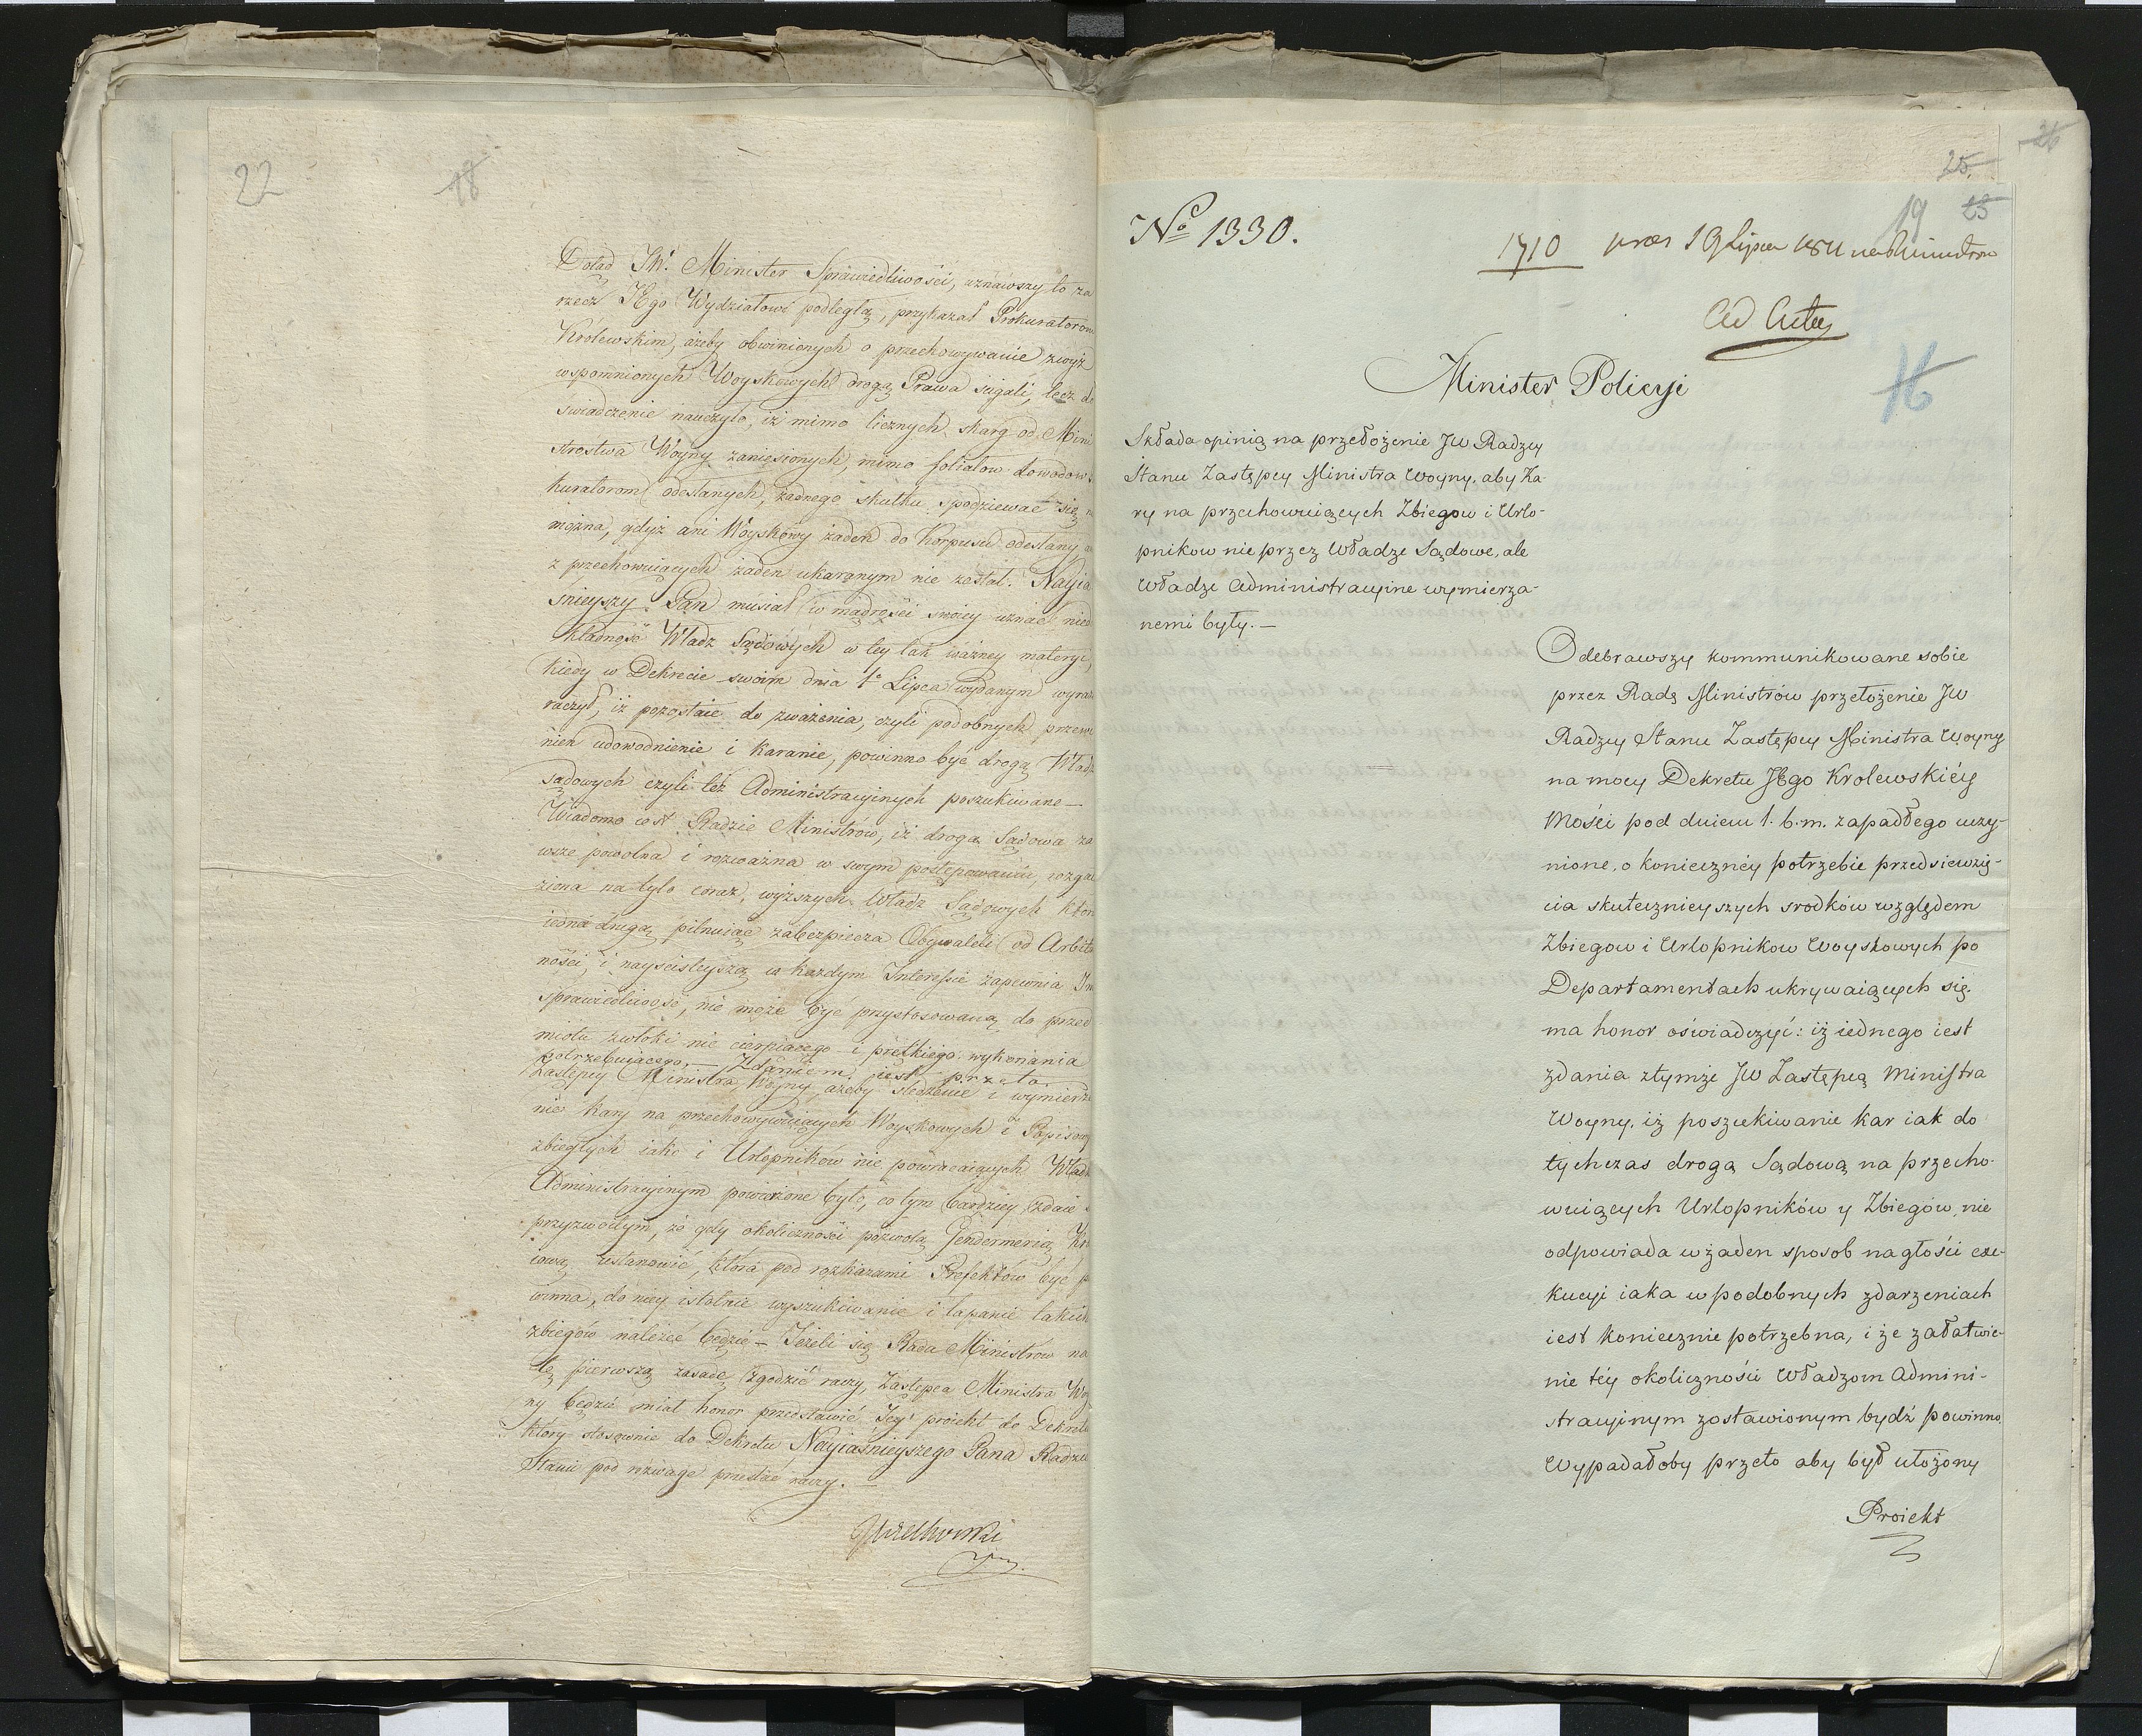 22
18
Dotąd JW. Minister Sprawiedliwości, uznawszy to za
rzecz JEgo Wydziałowi podległą, przykazał Prokuratorom
Królewskim, ażeby obwinionych o przechowywanie zwyż
wspomnionych Woyskowych drogą Prawa ścigali, lecz do
świadczenie nauczyło, iż mimo licznych skarg od Mini
strostwa Woyny zaniesionych, mimo foliałow dowodow
kuratorom odesłanych, żadnego skutku spodziewać się
można, gdyż ani Woyskowy żaden do Korpusu odesłany,
z przechowuiących żaden ukaranym nie został. Nayia
śnieyszy Pan musiał w mądrości swoiey uznać nied
kładność Władz Sądowych w tey tak ważney materyi,
kiedy w Dekrecie swoim dnia 1º Lipca wydanym wyra
raczył, iż pozostaie do zważenia, czyli podobnych przewi
nień udowodnienie i karanie, powinno być drogą Władz
sądowych czyli też Administracyinych poszukiwane —
Wiadomo iest Radzie Ministrów, iż droga Sądowa za
wsze powolna i rozważna w swym postępowaniu, rozga
ziona na tyle coraz wyższych Władz Sądowych które
iedna drugą pilnuiąc zabezpiecza Obywateli od Arbitr
ności, i nayściśleyszą w każdym Interessie zapewnia Im
sprawiedliwość, nie może być przystosowaną do przed
miotu zwłoki nie cierpiącego i prętkiego wykonania
potrzebuiącego, — Zdaniem iest przeto
Zastępcy Ministra Woyny, ażeby śledzenie i wymierza
nie kary na przechowywuiących Woyskowych i Popisow
zbiegłych iako i Urlopników nie powracaiących Wład
Administracyinym powierzone było, co tym bardziey zdaie
przyzwoitym, że gdy okoliczności pozwolą Gendermerią Kra
iową ustanowić, która pod rozkazami Prefektów być p
winna, do niey istotnie wyszukiwanie i łapanie takich
zbiegów należeć będzie — Jeżeli się Rada Ministrów na
tę pierwszą zasadę zgodzić raczy, Zastępca Ministra Woy
ny będzie miał honor przedstawić Jey proiekt do Dekretu
który stosownie do Dekretu Nayiaśnieyszego Pana Radzie
Stanu pod rozwagę przesłać raczy. —
Wielhorski
26
25.
19 23
Nº 1330.
1710 præs 19 Lipca 1811
Ad Acta
16
Minister Policyi
Składa opinią na przełożenie JW Radzcy
Stanu Zastępcy Ministra Woyny, aby Ka-
ry na przechowuiących Zbiegow i Urlo-
pnikow nie przez Władze Sądowe, ale
Władze Administracyine wymierza-
nemi były. —
Odebrawszy kommunikowane sobie
przez Radę Ministrów przełożenie JW
Radzcy Stanu Zastępcy Ministra Woyny
na mocy Dekretu JEgo Krolewskiéy
Mości pod dniem 1. b. m. zapadłego uczy-
nione, o konieczney potrzebie przedsiewzię-
cia skutecznieyszych srodków względem
Zbiegow i Urlopnikow Woyskowych po
Departamentach ukrywaiących się.
ma honor oświadczyć: iż iednego iest
zdania ztymże JW Zastępcą Ministra
Woyny, iż poszukiwanie kar iak do
tychczas drogą Sądową na przecho-
wuiących Urlopników y Zbiegów, nie
odpowiada w żaden sposob nagłości exe-
kucyi iaka w podobnych zdarzeniach
iest koniecznie potrzebna, i że załatwie-
nie téy okoliczności Władzom Admini-
stracyinym zostawionym bydź powinno
Wypadałoby przeto aby był ułożony
Proiekt